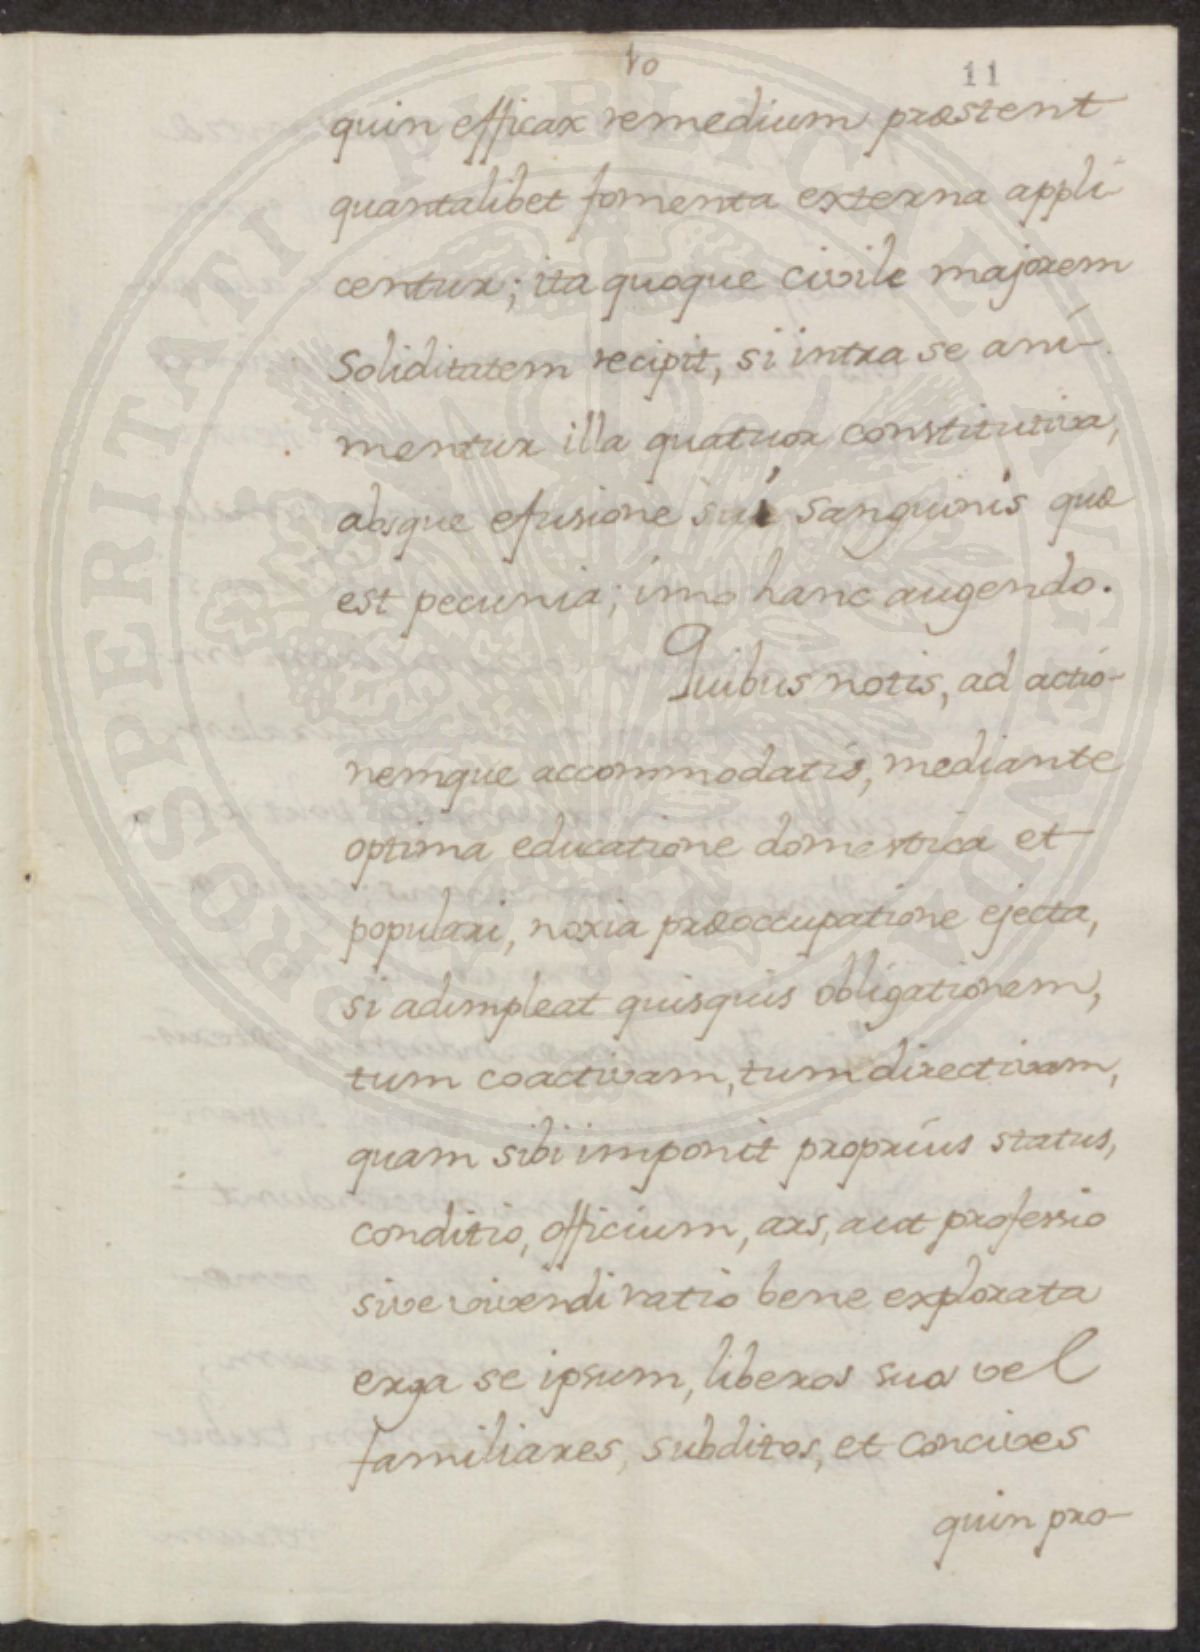 10
11
quin efficax remedium præstent
quantalibet fomenta externa appli-
centur; ita quoque civile majorem
soliditatem recipit, si intra se ani-
mentur illa quatuor constitutiva,
absque efusione sui sanguinis quæ
est pecunia; imo hanc augendo.
Quibus notis, ad actio-
nemque accommodatis, mediante
optima educatione domestica et
populari, noxia præoccupatione ejecta,
si adimpleat quisquis obligationem,
tum coactivam, tum directivam,
quam sibi imponit proprius status,
conditio, officium, ars, aut professio
sive vivendi ratio bene explorata
erga se ipsum, liberos suos vel
familiares, subditos, et concives
quin pro-
PROSPERITATI PUBLICAE AUGENDA